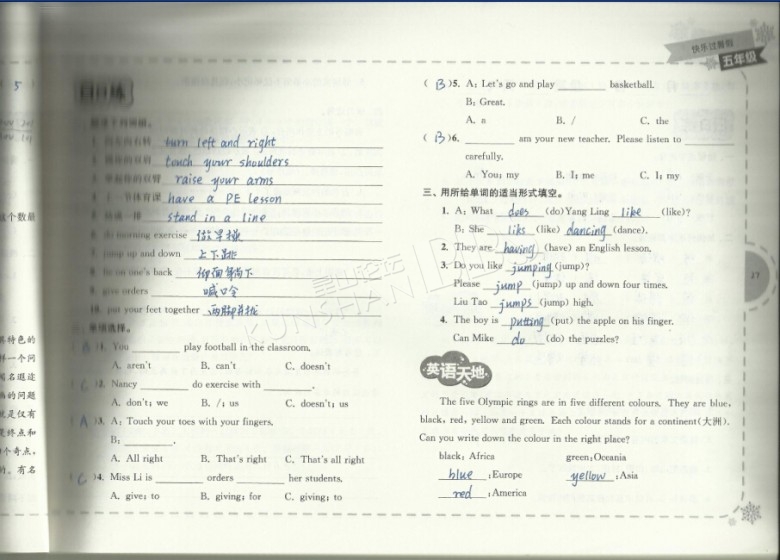 快乐过暑假
五年级
5
turn left and right
touch your shoulders
raise your arms
have a PE lesson
stand in a line
do morning exercise 做早操
jump up and down 上下跳
lie on one's back
give orders 喊口令
10. put your feet together
二、单项选择。
( B )1. You ________ play football in the classroom.
A. aren't B. can't C. doesn't
( C )2. Nancy ________ do exercise with ________.
A. don't; we B. /; us C. doesn't; us
( A )3. A: Touch your toes with your fingers.
B: ________.
A. All right B. That's right C. That's all right
( C )4. Miss Li is ________ orders ________ her students.
A. give; to B. giving; for C. giving; to
( B )5. A: Let's go and play ________ basketball.
B: Great.
A. a B. / C. the
( B )6. ________ am your new teacher. Please listen to ________
carefully.
A. You; my B. I; me C. I; my
三、用所给单词的适当形式填空。
1. A: What does (do) Yang Ling like (like)?
B: She liks (like) dancing (dance).
2. They are having (have) an English lesson.
3. Do you like jumping (jump)?
Please jump (jump) up and down four times.
Liu Tao jumps (jump) high.
4. The boy is putting (put) the apple on his finger.
Can Mike do (do) the puzzles?
英语天地
The five Olympic rings are in five different colours. They are blue,
black, red, yellow and green. Each colour stands for a continent(大洲).
Can you write down the colour in the right place?
black: Africa green: Oceania
blue : Europe yellow : Asia
red : America
37
KUNSHAN